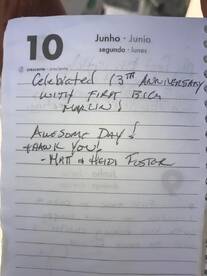 10
Junho - Junio
segundo - lunes
crescente - creciente
Celebrated 13th Anniversary
with first Big
Marlin!
Awesome Day!
thank you!
- Matt & Heidi Foster